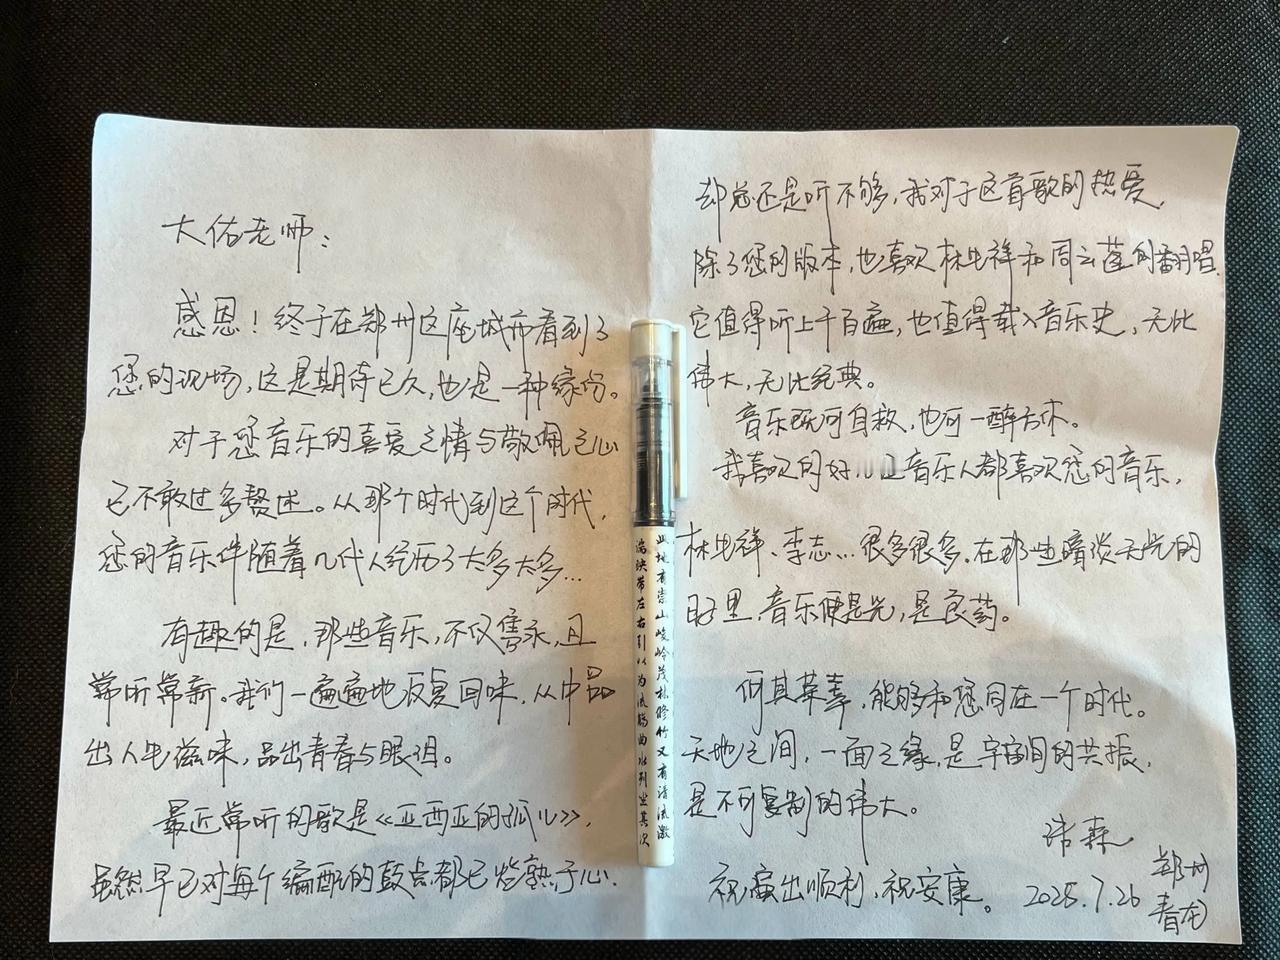 大佑老师：
感恩！终于在郑州这座城市看到了
您的现场，这是期待已久，也是一种缘份。
对于您音乐的喜爱之情与敬佩之心
已不敢过多赘述。从那个时代到这个时代，
您的音乐伴随着几代人经历了太多太多…
有趣的是，那些音乐，不仅隽永，且
常听常新。我们一遍遍地反复回味，从中品
出人生滋味，品出青春与眼泪。
最近常听的歌是《亚西亚的孤儿》，
虽然早已对每个编配的鼓点都已烂熟于心，
却总还是听不够，我对于这首歌的热爱，
除了您的版本，也喜欢林生祥和周云蓬的翻唱，
它值得听上千百遍，也值得载入音乐史，无比
伟大，无比经典。
音乐既可自救，也可一醉方休。
我喜欢的好 音乐人都喜欢您的音乐，
林生祥、李志…很多很多，在那些暗淡无光的
日子里，音乐便是光，是良药。
何其荣幸，能够和您同在一个时代。
天地之间，一面之缘，是宇宙间的共振，
是不可复制的伟大。
祝演出顺利，祝安康。
森
2025.7.26
郑州
青龙
此地有崇山峻岭茂林修竹又有清流激
湍映带左右引以为流觞曲水列坐其次